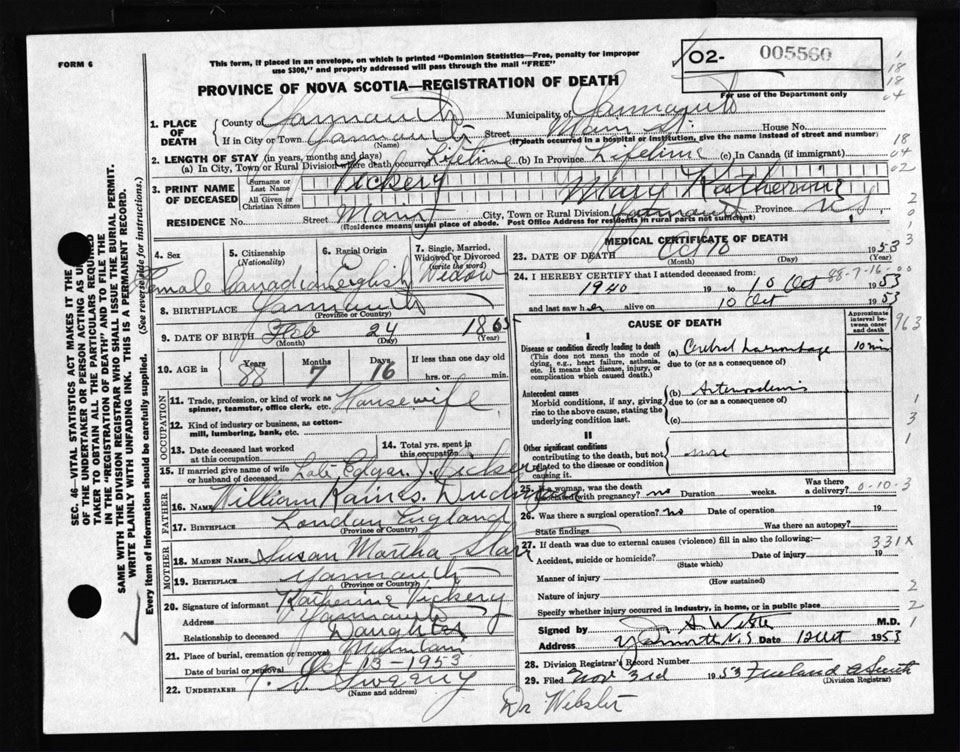 FORM 6
This form, if placed in an envelope, on which is printed "Dominion Statistics—Free, penalty for improper
use $300," and properly addressed will pass through the mail "FREE"
O2- 005560
For use of the Department only
PROVINCE OF NOVA SCOTIA—REGISTRATION OF DEATH
1. PLACE OF DEATH
County of Yarmouth Municipality of Yarmouth
If in City or Town Yarmouth Street Main St. House No.
(Name) (If death occurred in a hospital or institution, give the name instead of street and number)
2. LENGTH OF STAY (in years, months and days)
(a) In City, Town or Rural Division where death occurred Lifetime (b) In Province Lifetime (c) In Canada (if immigrant)
3. PRINT NAME OF DECEASED
Surname or Last Name Vickery
All Given or Christian Names Mary Katherine
RESIDENCE No. Street Main City, Town or Rural Division Yarmouth Province N S
(Residence means usual place of abode. Post Office Address for residents in rural parts not sufficient)
4. Sex Female
5. Citizenship (Nationality) Canadian
6. Racial Origin English
7. Single, Married, Widowed or Divorced (write the word) Widow
8. BIRTHPLACE Yarmouth
(Province or Country)
9. DATE OF BIRTH Feb 24 1865
(Month) (Day)
10. AGE in Years 88 Months 7 Days 16 If less than one day old
hrs. or min.
OCCUPATION
11. Trade, profession, or kind of work as spinner, teamster, office clerk, etc. Housewife
12. Kind of industry or business, as cotton-mill, lumbering, bank, etc.
13. Date deceased last worked at this occupation
14. Total yrs. spent in this occupation
15. If married give name of wife or husband of deceased Late Edgar J. Vickery
FATHER
16. NAME William Raines Dudman
17. BIRTHPLACE London England
(Province or Country)
MOTHER
18. MAIDEN NAME Susan Martha Starr
19. BIRTHPLACE Yarmouth
(Province or Country)
20. Signature of informant Katherine Vickery
Address Yarmouth
Relationship to deceased Daughter
21. Place of burial, cremation or removal
Date of burial or removal Oct 13-1953
22. UNDERTAKER Sweeny
(Name and address)
MEDICAL CERTIFICATE OF DEATH
23. DATE OF DEATH Oct 10 1953
(Month) (Day)
24. I HEREBY CERTIFY that I attended deceased from:
1940 19 to 10 Oct 1953
and last saw her alive on 10 Oct 1953
88-7-16-00
CAUSE OF DEATH
Approximate interval between onset and death
Disease or condition directly leading to death
(This does not mean the mode of dying, e.g., heart failure, asthenia, etc. It means the disease, injury, or complication which caused death.)
(a) Haemorrhage 10 min
due to (or as a consequence of)
Antecedent causes
Morbid conditions, if any, giving rise to the above cause, stating the underlying condition last.
(b)
due to (or as a consequence of)
(c)
II
Other significant conditions contributing to the death, but not related to the disease or condition causing it.
none
25. If a woman, was the death associated with pregnancy? no Duration weeks. Was there a delivery?
0-10-3
26. Was there a surgical operation? no Date of operation 19
State findings Was there an autopsy?
27. If death was due to external causes (violence) fill in also the following: 331X
Accident, suicide or homicide? Date of injury 19
(State which)
Manner of injury
(How sustained)
Nature of injury
Specify whether injury occurred in industry, in home, or in public place
Signed by M.D.
Address Yarmouth N.S. Date 12 Oct 1953
28. Division Registrar's Record Number
29. Filed Nov 3rd 1953 Smith
(Division Registrar)
Dr Webster
SEC. 46—VITAL STATISTICS ACT MAKES IT THE
OF THE UNDERTAKER OR PERSON ACTING AS
TAKER TO OBTAIN ALL THE PARTICULARS REQUIRED
IN THE "REGISTRATION OF DEATH" AND TO FILE THE
SAME WITH THE DIVISION REGISTRAR WHO SHALL ISSUE THE BURIAL PERMIT.
WRITE PLAINLY WITH UNFADING INK. THIS IS A PERMANENT RECORD.
Every item of information should be carefully supplied. (See reverse side for instructions.)